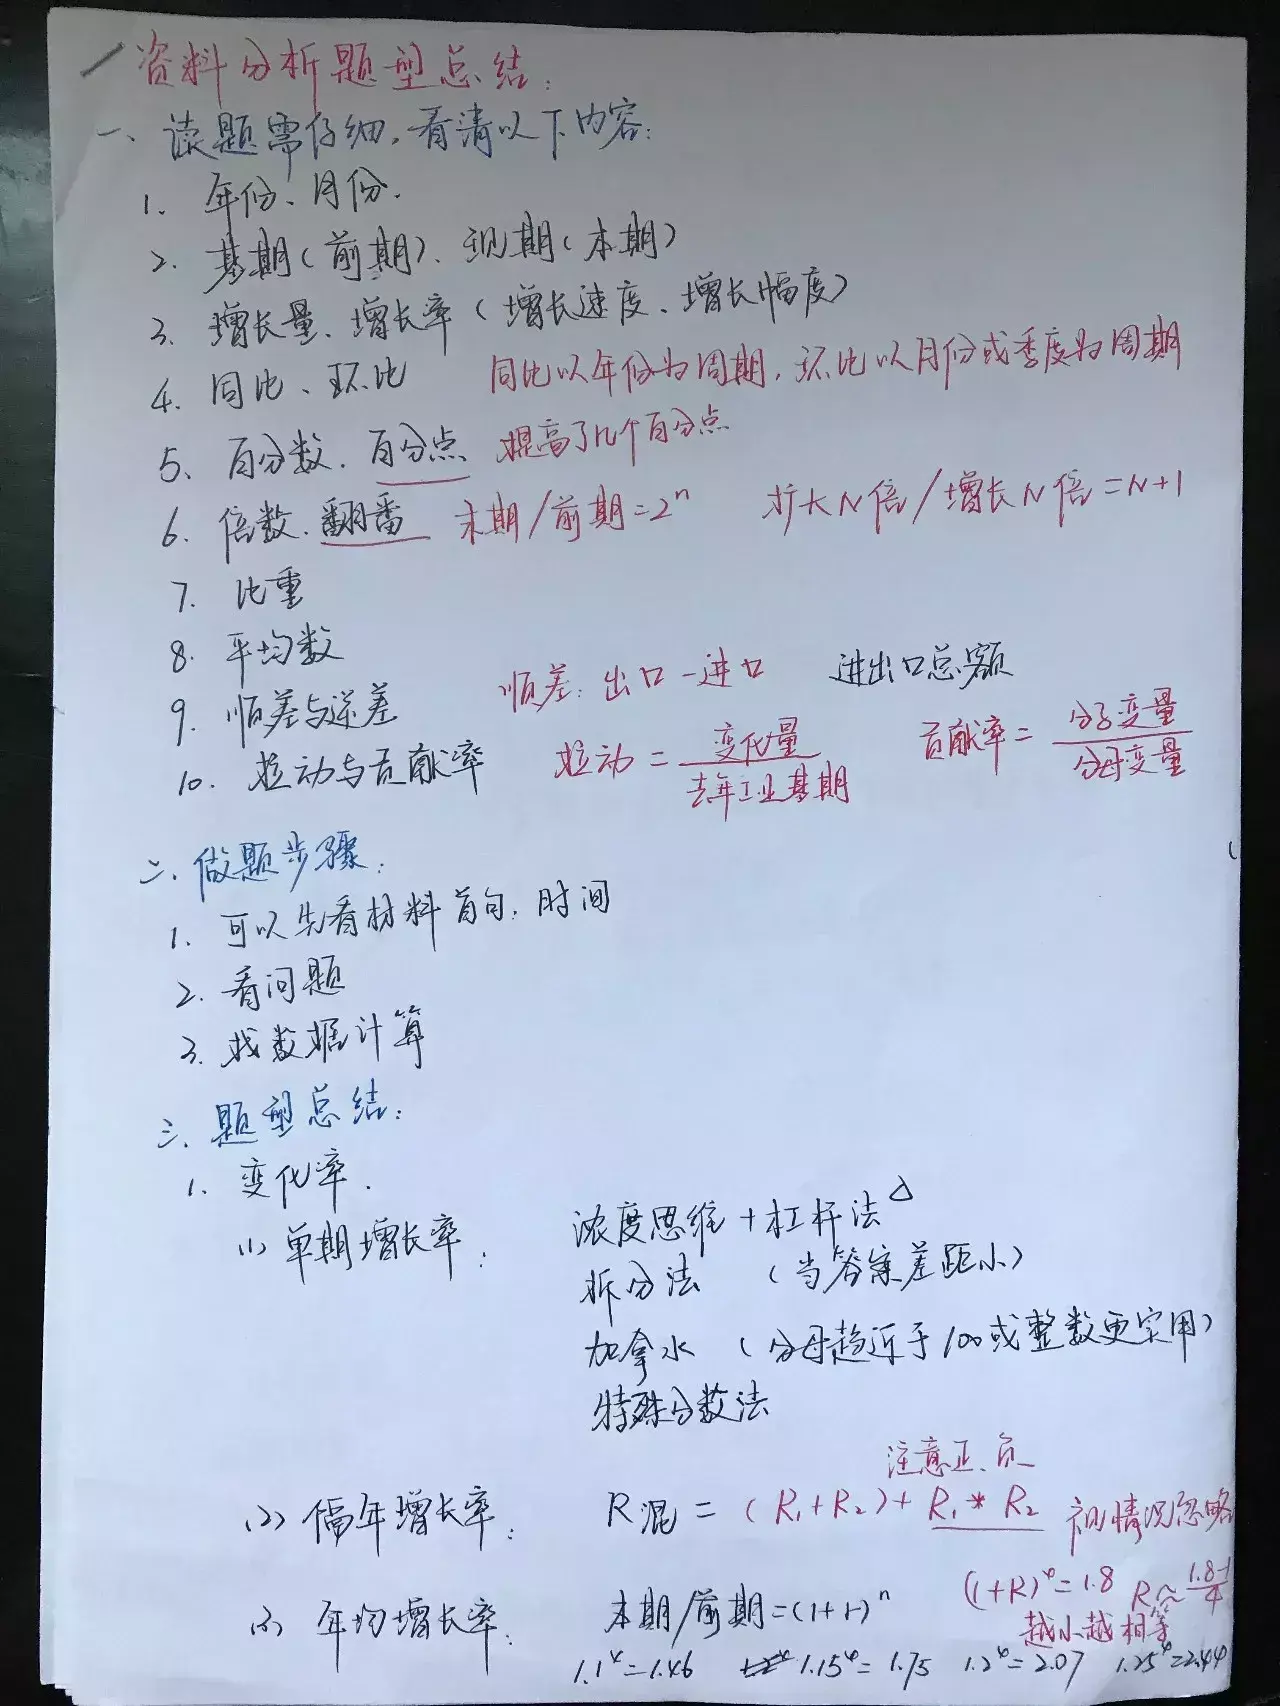 资料分析题型总结:
一、读题需仔细,看清以下内容:
1. 年份、月份.
2. 基期(前期)、现期(本期)
3. 增长量、增长率(增长速度、增长幅度)
4. 同比、环比 同比以年份为周期,环比以月份或季度为周期
5. 百分数、百分点 提高了几个百分点
6. 倍数、翻番 末期/前期=2ⁿ 扩大N倍/增长N倍=N+1
7. 比重
8. 平均数
9. 顺差与逆差 顺差:出口-进口 进出口总额
10. 拉动与贡献率 拉动=变化量/去年工业基期 贡献率=分子变量/分母变量
二、做题步骤:
1. 可以先看材料首句,时间
2. 看问题
3. 找数据计算
三、题型总结:
1. 变化率.
(1) 单期增长率: 浓度思维+杠杆法△
拆分法 (当答案差距小)
加拿水 (分母趋近于100或整数更实用)
特殊分数法
注意正、负
(2) 隔年增长率: R混=(R₁+R₂)+R₁*R₂ 视情况忽略
(3) 年均增长率: 本期/前期=(1+r)ⁿ (1+R)⁴=1.8 R≈1.8-1/4
越小越相等
1.1⁴=1.46 1.15⁴=1.75 1.2⁴=2.07 1.25⁴=2.44